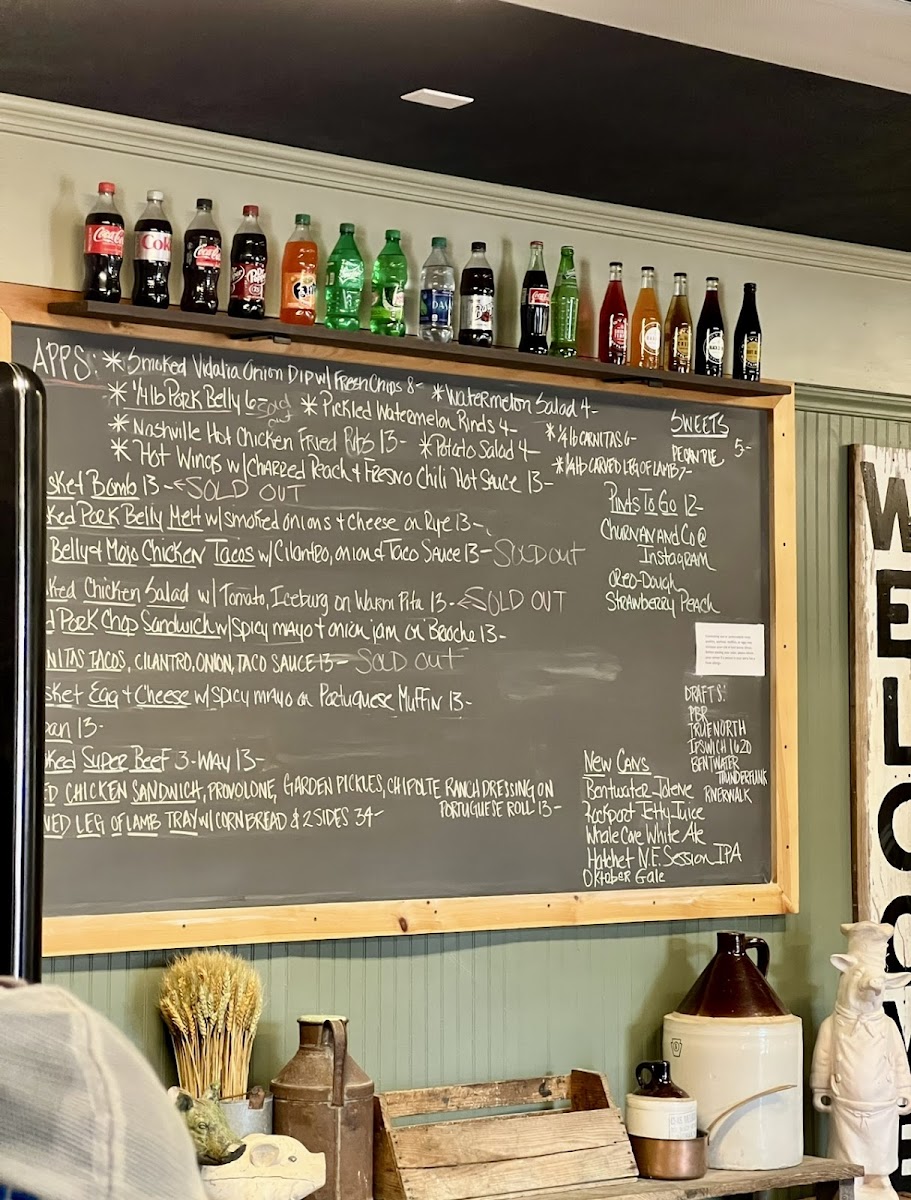 APPS: * Smoked Vidalia Onion Dip w/ Fresh Chips 8- * Watermelon Salad 4-
* 1/4 lb Pork Belly 6- Sold out * Pickled Watermelon Rinds 4-
* Nashville Hot Chicken Fried Ribs 13- * Potato Salad 4- * 1/4 lb CARNITAS 6-
* Hot Wings w/ Charred Peach & Fresno Chili Hot Sauce 13- * 1/4 lb CARVED LEG OF LAMB 7-
SWEETS
PECAN PIE 5-
sket Bomb 13- SOLD OUT
ked Pork Belly Melt w/ smoked onions + cheese on Rye 13-
Belly & Mojo Chicken Tacos w/ Cilantro, onion & Taco Sauce 13- Sold out
ked Chicken Salad w/ Tomato, Iceburg on Warm Pita 13- SOLD OUT
d Pork Chop Sandwich w/ spicy mayo + onion jam on Brioche 13-
NITAS TACOS, CILANTRO, ONION, TACO SAUCE 13- SOLD OUT
sket Egg + Cheese w/ spicy mayo on Portuguese Muffin 13-
ban 13-
ked Super Beef 3-WAY 13-
ED CHICKEN SANDWICH, PROVOLONE, GARDEN PICKLES, CHIPOLTE RANCH DRESSING ON
PORTUGUESE ROLL 13-
VED LEG OF LAMB TRAY w/ CORNBREAD & 2 SIDES 34-
Pints To Go 12-
Churn and Co @
Instagram
Oreo-Dough
Strawberry Peach
DRAFTS:
PBR
TRUE NORTH
IPSWICH 1620
BENTWATER
THUNDERFUNK
RIVERWALK
New Cans
Bentwater
Rockport Jetty Juice
Whale Cove White Ale
Hatchet N.E. Session IPA
Oktober Gale
WELCOME
Coca-Cola
Coke
Coca-Cola
Dr Pepper
Coca-Cola